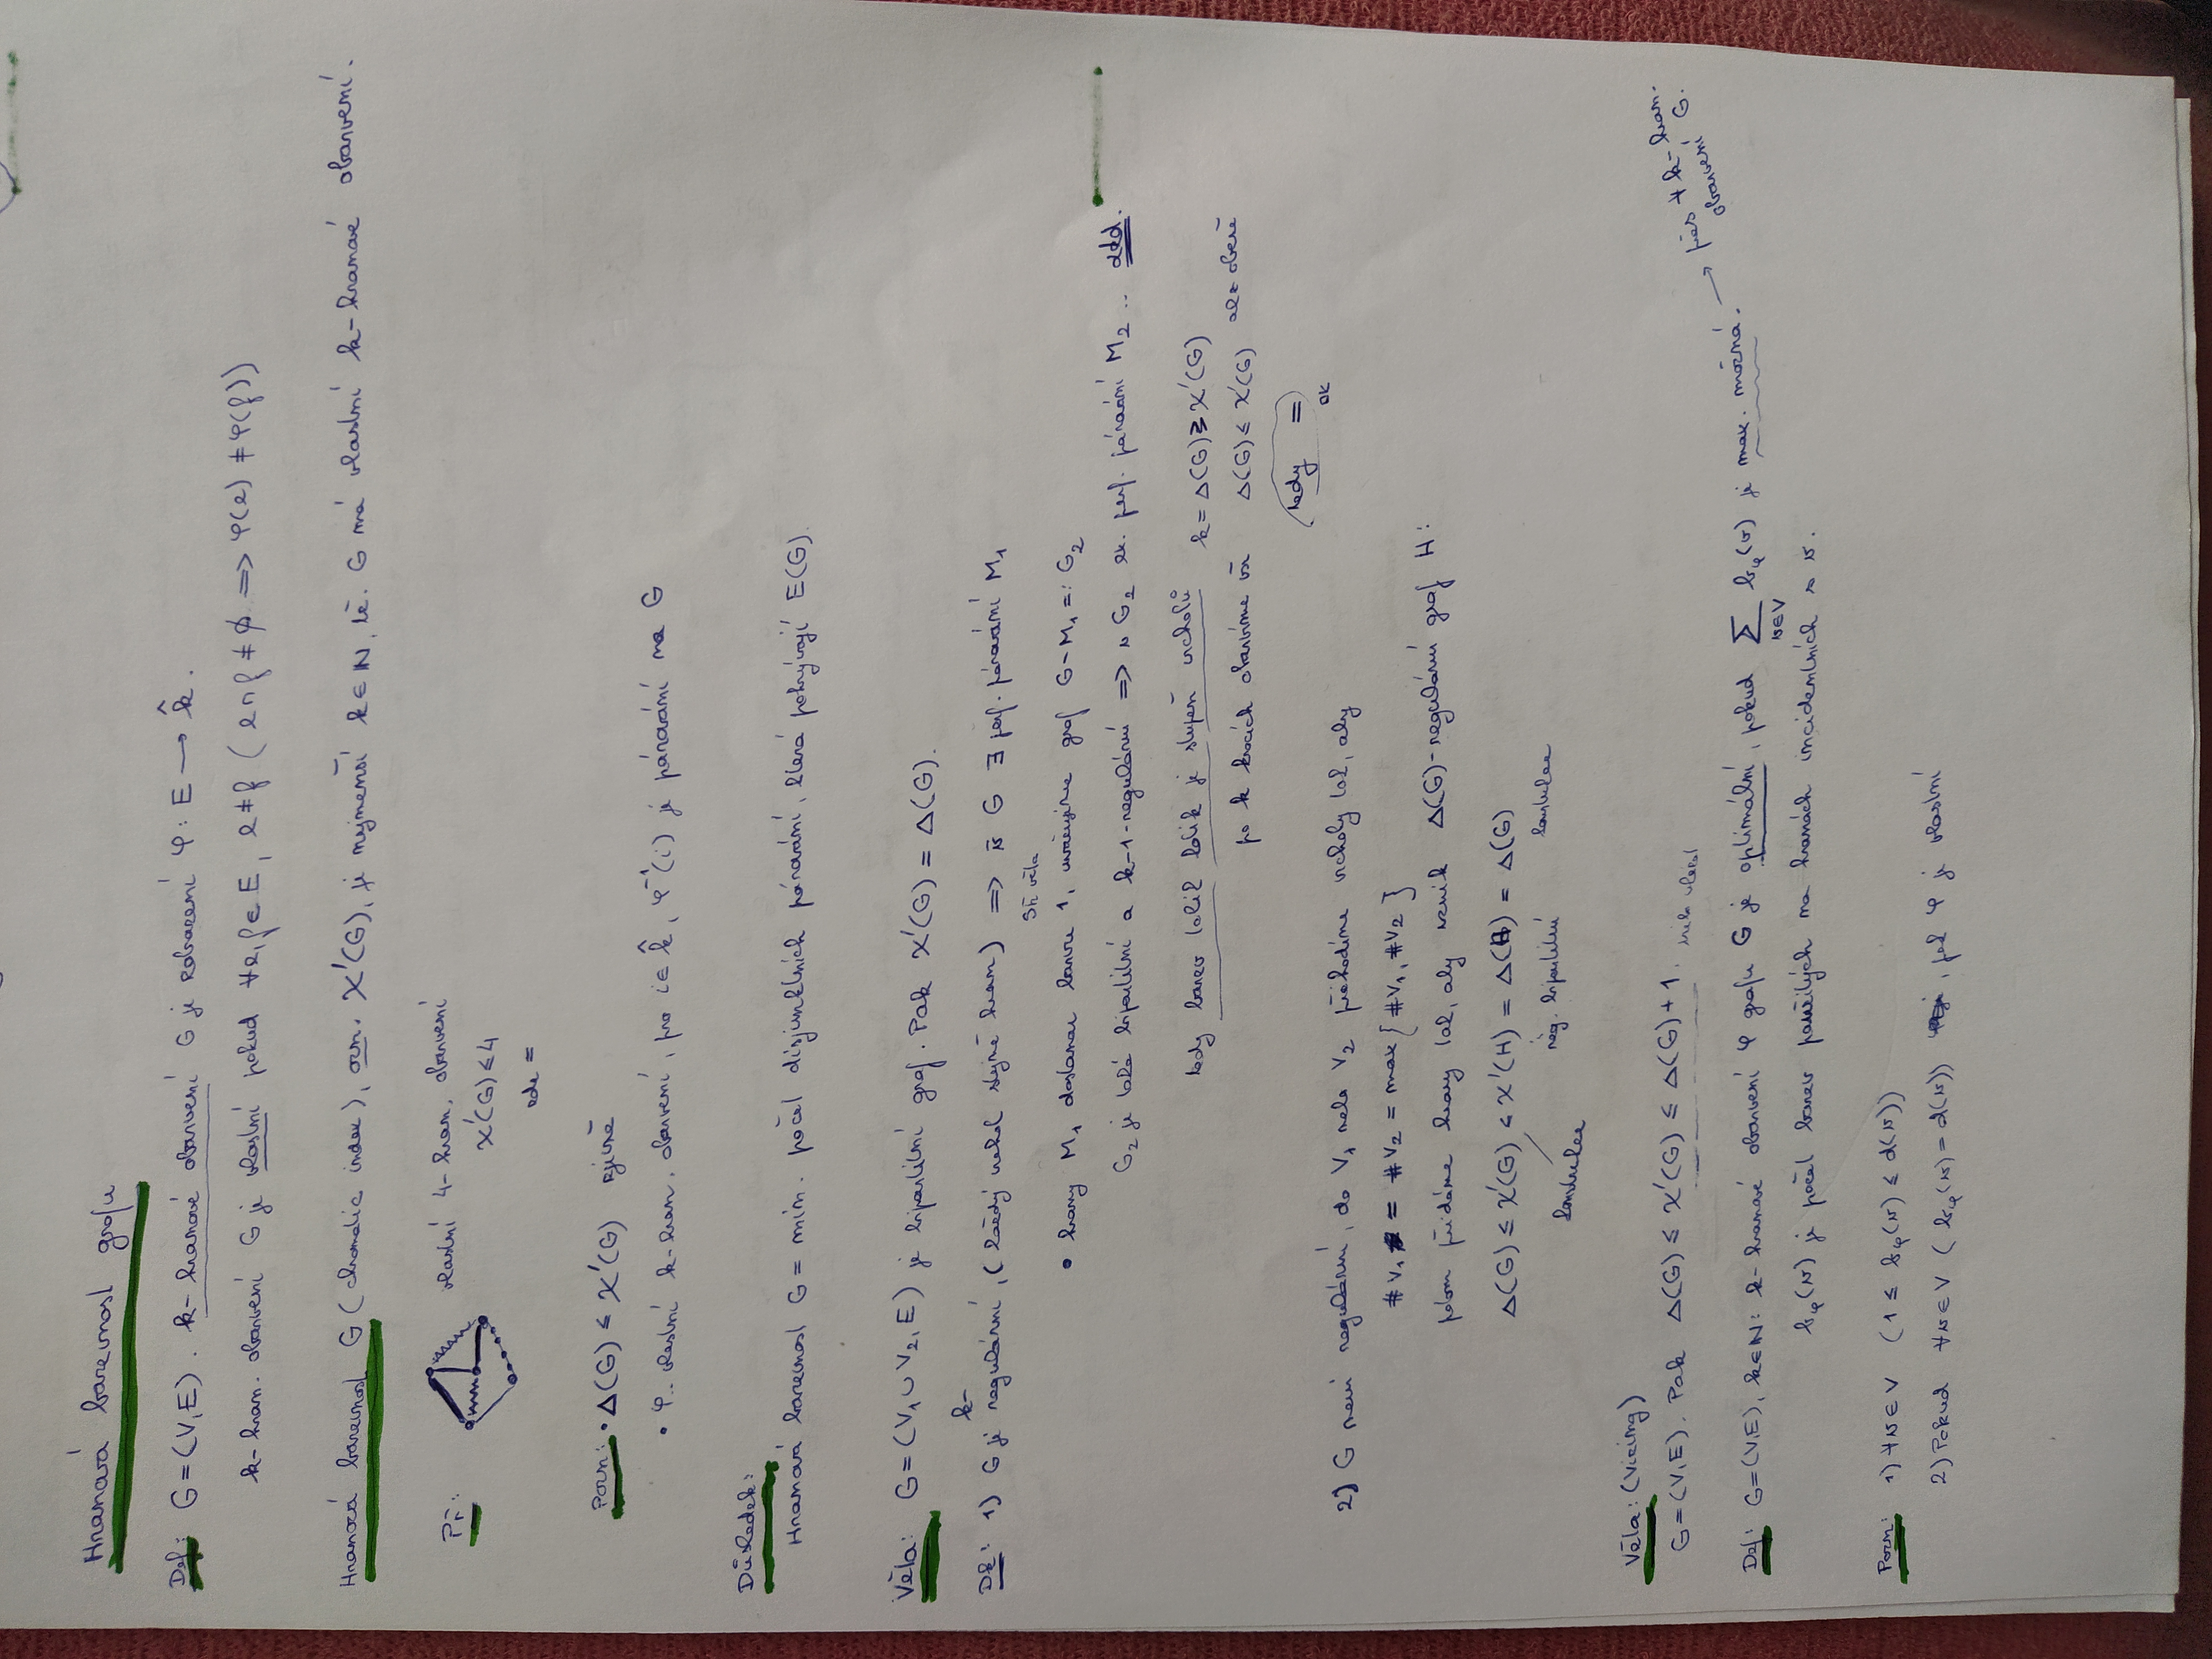 Hranová barevnost grafu
Def: G=(V,E). k-hranové obarvení G je zobrazení φ: E → k̂.
k-hran. obarvení G je vlastní pokud ∀e,f ∈ E, e≠f (e∩f ≠ ∅ => φ(e) ≠ φ(f))
Hranová barevnost G (chromatic index), ozn. χ'(G), je nejmenší k∈N, tž. G má vlastní k-hranové obarvení.
Př.: vlastní 4-hran. obarvení
χ'(G) ≤ 4
zde =
Pozn: • Δ(G) ≤ χ'(G) zjevně
• φ.. vlastní k-hran. obarvení, pro i∈k̂, φ⁻¹(i) je párování na G
Důsledek:
Hranová barevnost G = min. počet disjunktních párování, která pokrývají E(G).
Věta: G=(V₁ ∪ V₂, E) je bipartitní graf. Pak χ'(G) = Δ(G).
Dk: 1) G je k-regulární, (každý vrchol stejně hran) => v G ∃ perf. párování M₁
Sň věta
• hrany M₁ dostanou barvu 1, uvažujme graf G-M₁ =: G₂
G₂ je také bipartitní a k-1-regulární => v G₂ ex. perf. párování M₂ .. atd.
tedy barev totiž tolik je stupeň vrcholů k = Δ(G) ≥ χ'(G)
po k krocích obarvíme vš Δ(G) ≤ χ'(G) ale obecně
tedy =
OK
2) G není regulární, do V₁ nebo V₂ přihodíme vrcholy tak, aby
#V₁ = #V₂ = max{#V₁, #V₂}
potom přidáme hrany tak, aby vznik Δ(G)-regulární graf H:
Δ(G) ≤ χ'(G) ≤ χ'(H) = Δ(H) = Δ(G)
reg. bipartitní konstrukce
konstrukce
Věta: (Vizing)
G=(V,E). Pak Δ(G) ≤ χ'(G) ≤ Δ(G)+1.
Def: G=(V,E), k∈N: k-hranové obarvení φ grafu G je optimální, pokud Σ b_φ(v) je max. možná. → přes ∀ k-hran. obarvení G.
v∈V
b_φ(v) je počet barev použitých na hranách incidentních s v.
Pozn: 1) ∀v∈V (1 ≤ b_φ(v) ≤ d(v))
2) Pokud ∀v∈V (b_φ(v) = d(v)), pak φ je vlastní